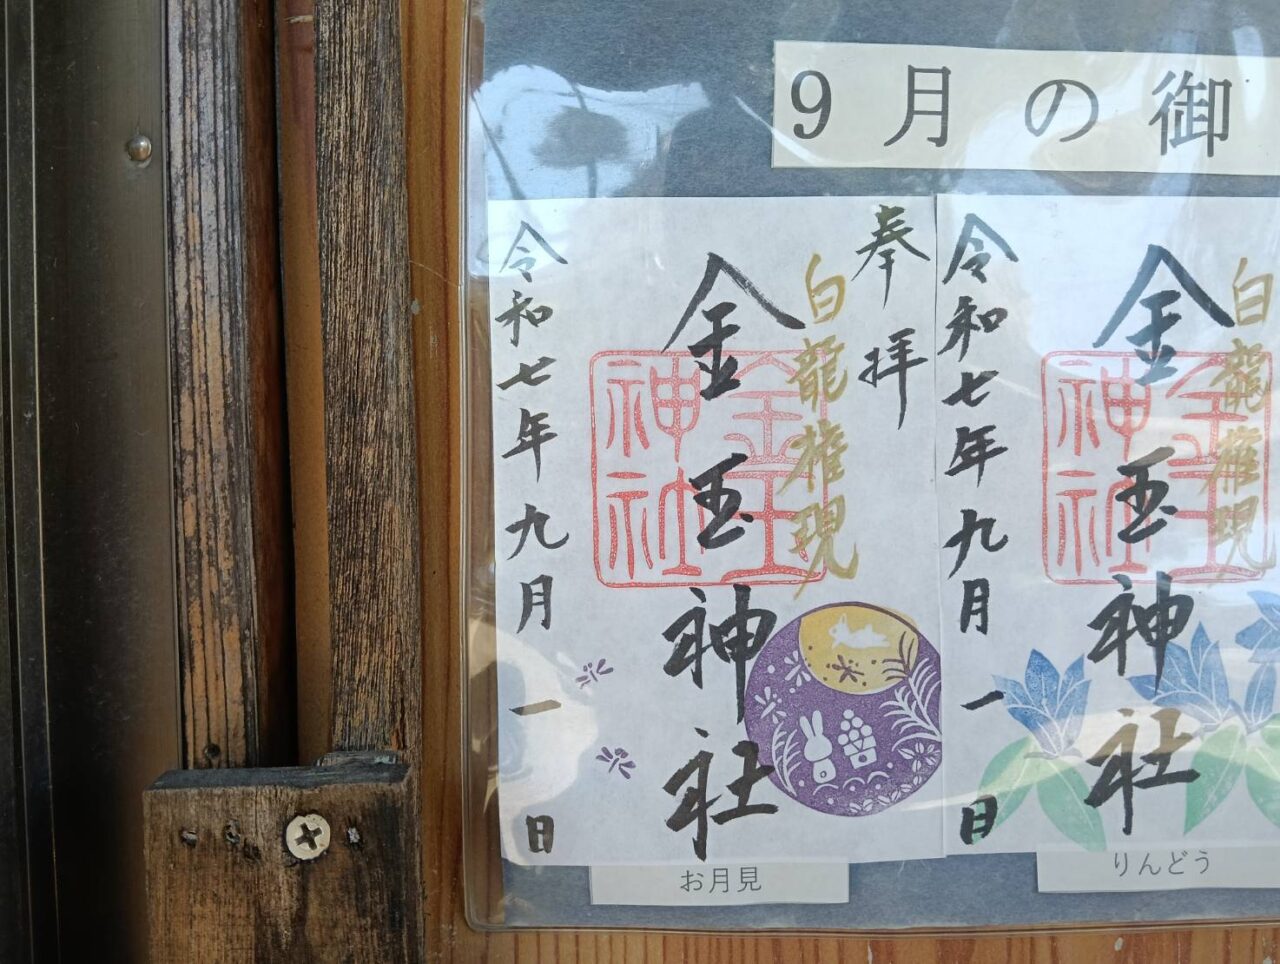 9月の御
奉拝
白龍権現
金玉神社
金玉神社
令和七年九月一日
お月見
白龍権現
金玉神社
金玉神社
令和七年九月一日
りんどう